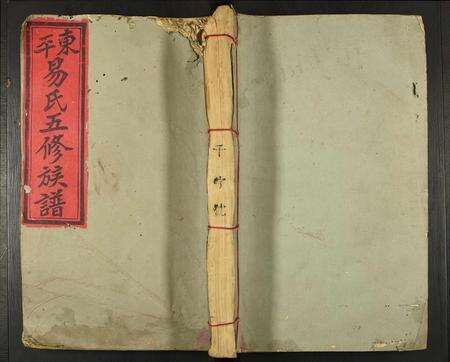 東平
易氏五修族譜